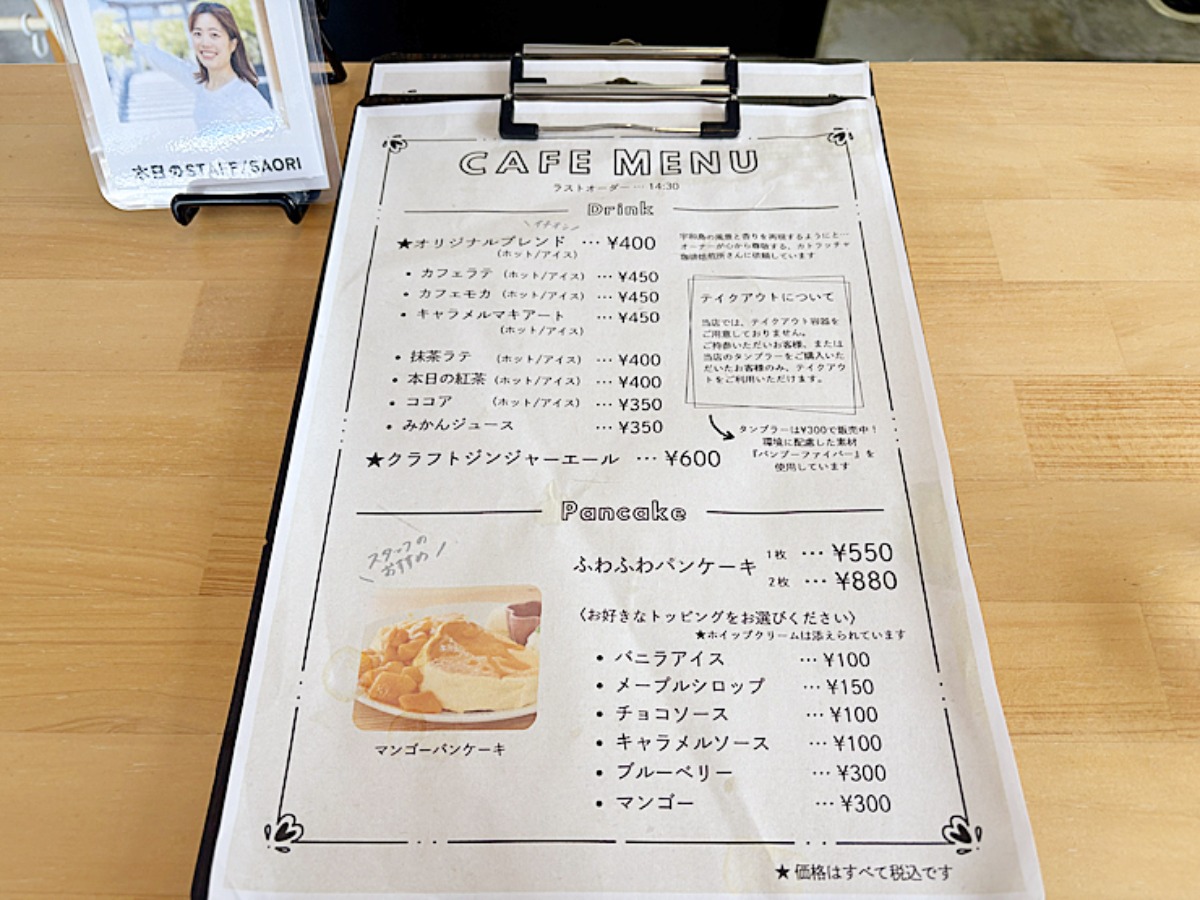 本日のSTAFF/SAORI
CAFE MENU
ラストオーダー … 14:30
Drink
イチオシ
★オリジナルブレンド … ¥400
(ホット/アイス)
宇和島の風景と香りを再現するようにと…
オーナーが心から尊敬する、カトラッチャ
珈琲焙煎所さんに依頼しています
• カフェラテ (ホット/アイス) … ¥450
• カフェモカ (ホット/アイス) … ¥450
• キャラメルマキアート … ¥450
(ホット/アイス)
• 抹茶ラテ (ホット/アイス) … ¥400
• 本日の紅茶 (ホット/アイス) … ¥400
• ココア (ホット/アイス) … ¥350
• みかんジュース … ¥350
★クラフトジンジャーエール … ¥600
テイクアウトについて
当店では、テイクアウト容器を
ご用意しておりません。
ご持参いただいお客様、または
当店のタンブラーをご購入いた
だいたお客様のみ、テイクアウ
トをご利用いただけます。
タンブラーは¥300で販売中！
環境に配慮した素材
『バンブーファイバー』を
使用しています
Pancake
スタッフの
おすすめ
マンゴーパンケーキ
ふわふわパンケーキ 1枚 … ¥550
2枚 … ¥880
〈お好きなトッピングをお選びください〉
★ホイップクリームは添えられています
• バニラアイス … ¥100
• メープルシロップ … ¥150
• チョコソース … ¥100
• キャラメルソース … ¥100
• ブルーベリー … ¥300
• マンゴー … ¥300
★価格はすべて税込です